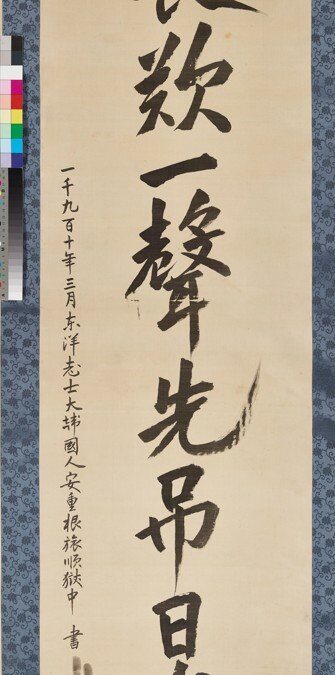 歎一聲先吊日
一千九百十年三月东洋志士大韓國人安重根旅順獄中 書